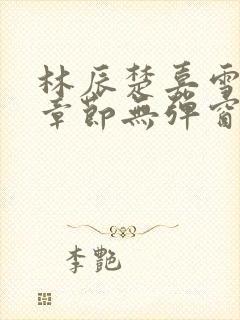 林辰楚嘉雪
章節無彈窗
李艷